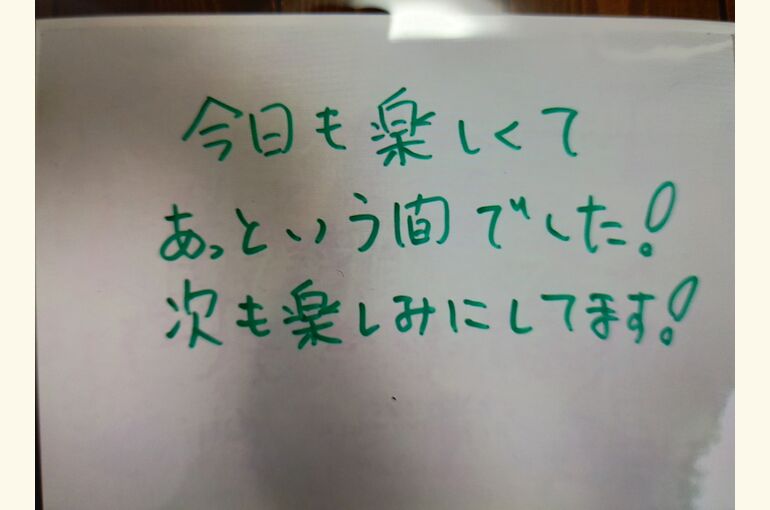 今日も楽しくて
あっという間でした!
次も楽しみにしてます!